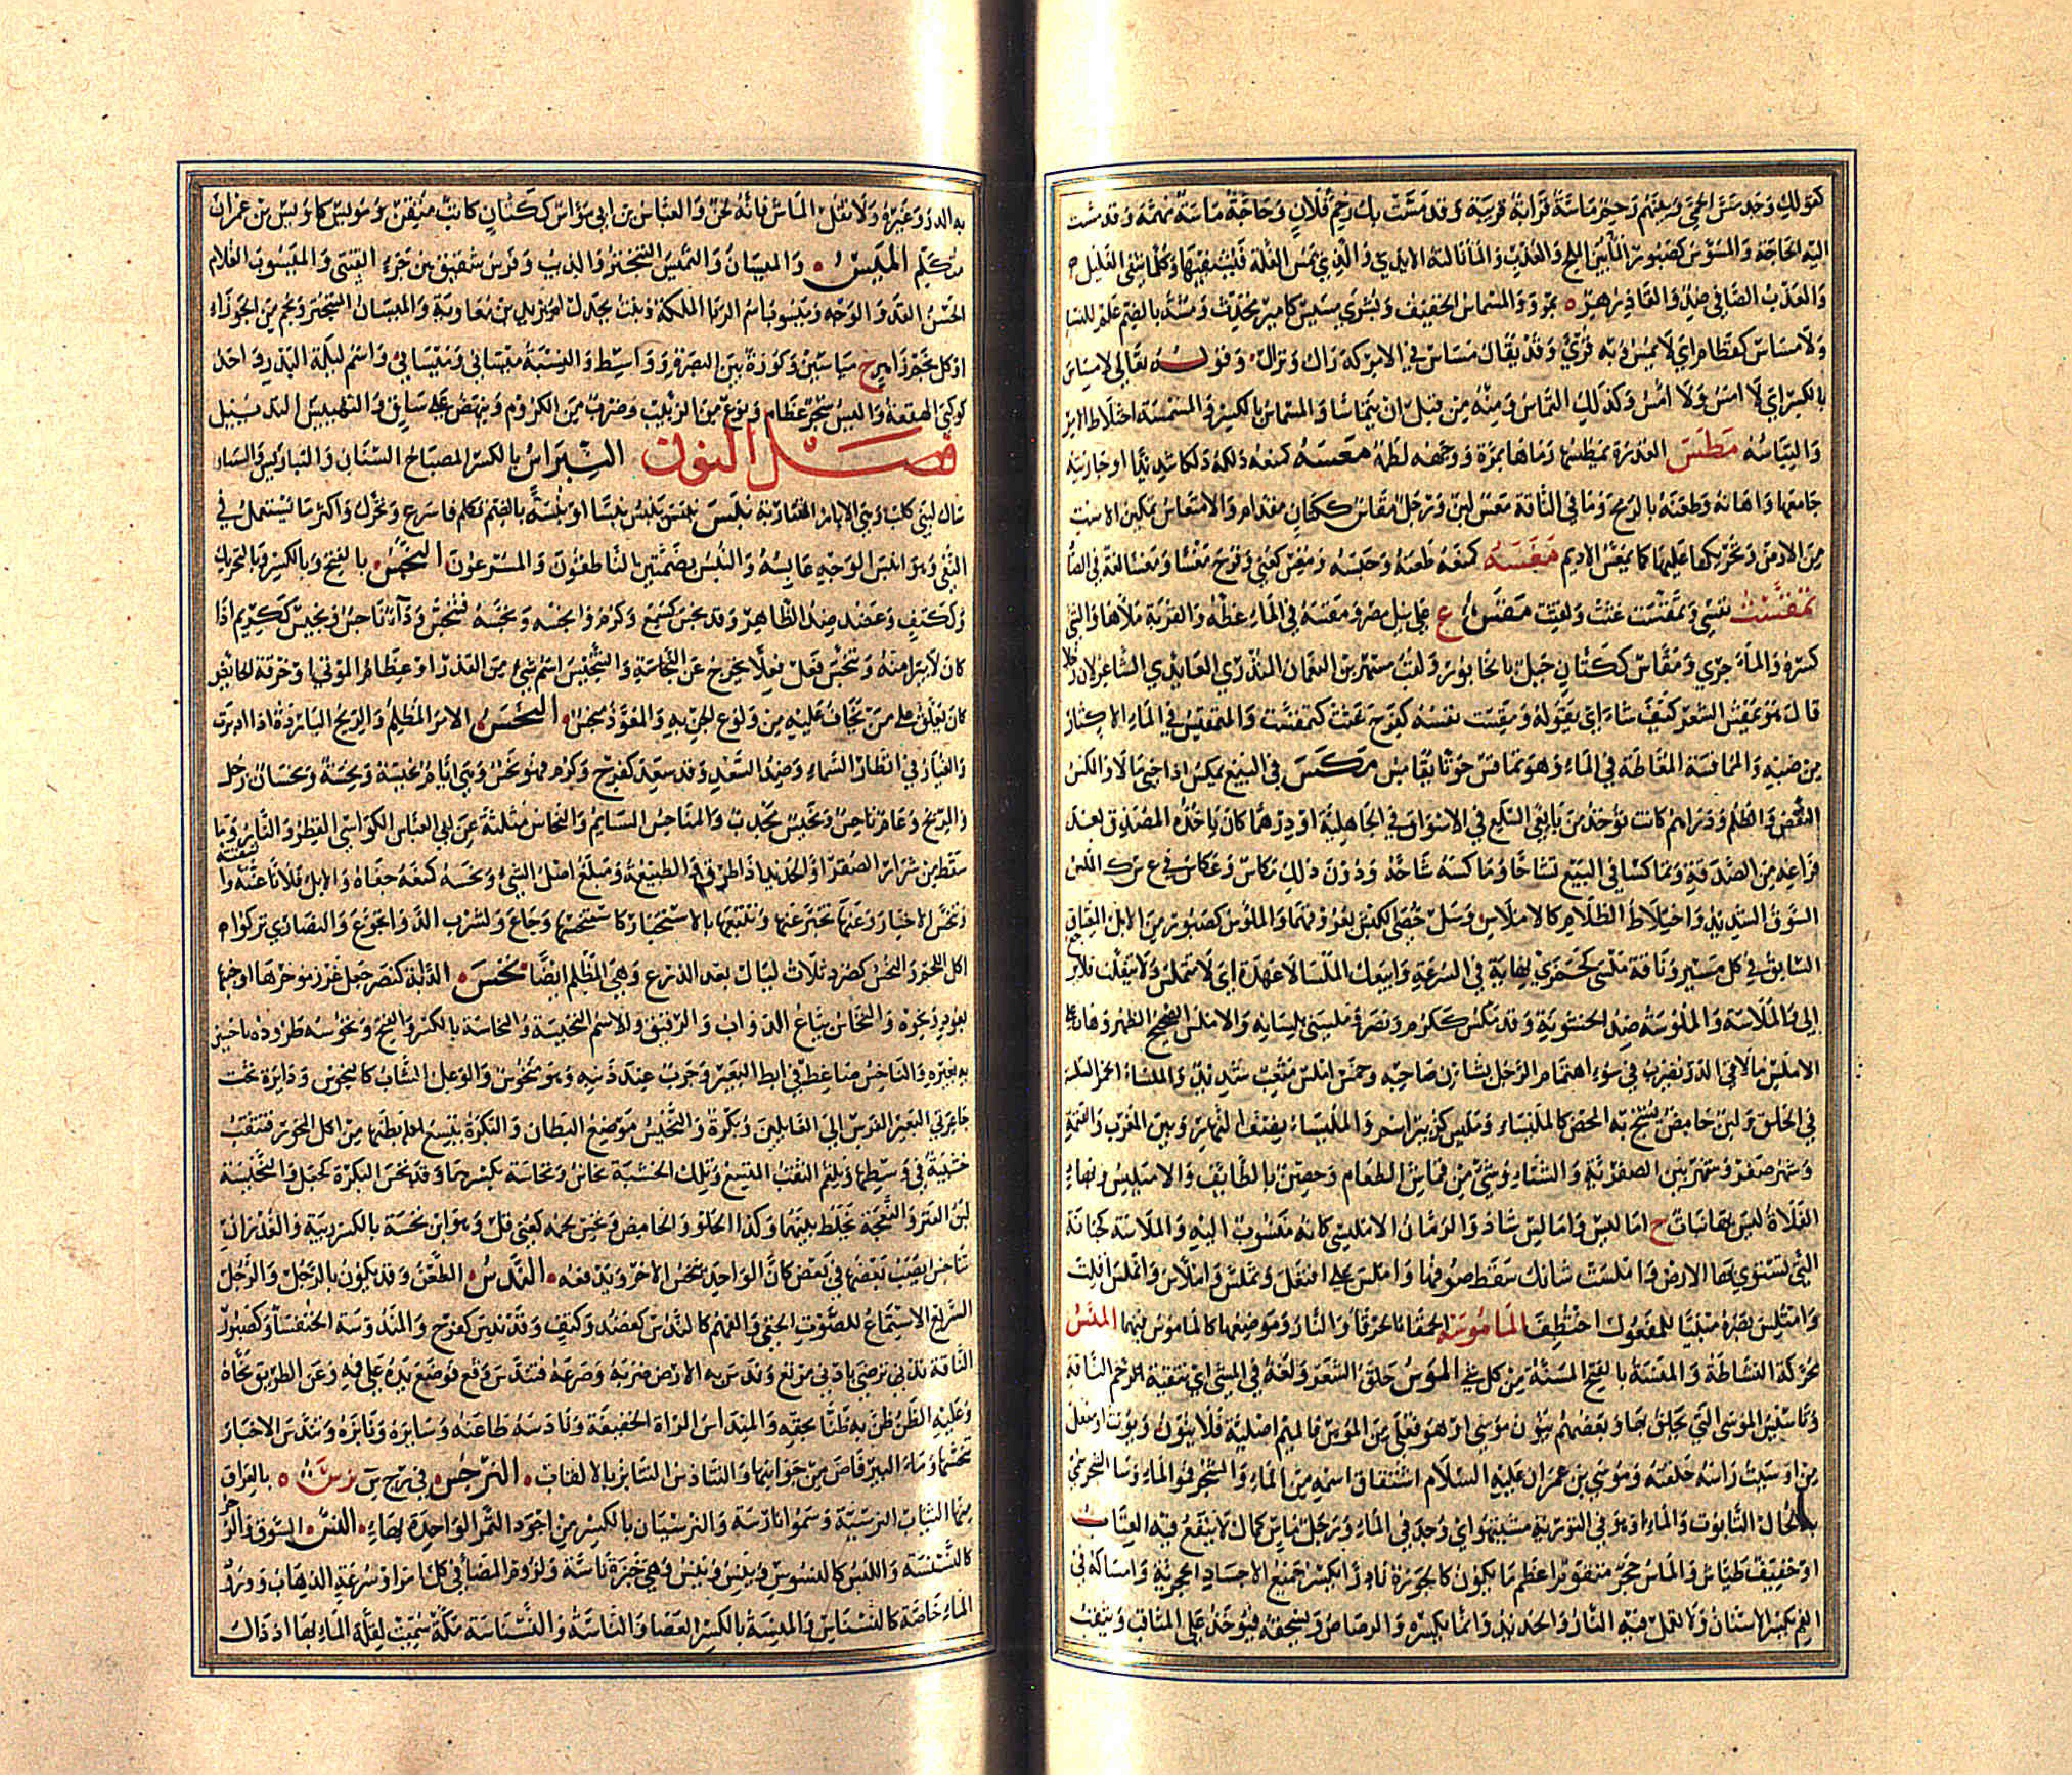 كقولك وجد مس الحمى وبينهم رحم ماسة قرابة قريبة وقد مست بك رحم فلان وحاجة ماسة مهمة وقد مست
اليه الحاجة والمسوس كصبور من الماء بين الملح والعذب والماء نالته الايدي والذي يمس الغلة فيشفيها وكل ما شفى الغليل
والعذب الصافي ضد والفاذزهر
ولا مساس كقطام اي لا تمس وبه قرئ وقد يقال مساس في الامر كدراك ونزال وقوله تعالى لا مساس
بالكسر اي لا امس ولا امس وكذلك التماس ومنه من قبل ان يتماسا والمساس بالكسر والمسمسة اختلاط الامر
والتباسه مطس العذرة يمطسها رماها بمرة ووجهه لطمه معسه كمنعه دلكه دلكا شديدا او جاريته
جامعها واهانه وطعنه بالرمح وما في الناقة معس لبن ورجل معاس ككتان مقدام والامتعاس تمكين الاست
من الارض وتحريكها عليها كما يمعس الاديم مغسه كمنعه طعنه وجسه ومغس كعني وفرح مغسا ومغسا لغة في الصاد
تمقست نفسي وتمقست غثت ولقست مقس ع على نيل مصر ومقسه في الماء غطه والقربة ملأها والشئ
كسره والماء جرى ومقاس ككتان جبل بالخابور ولقب مسهر بن النعمان العائذي الشاعر لان رجلا
قال هو يمقس الشعر كيف شاء اي يقوله ومقست نفسه كفرح غثت كتمقست والتمقيس في الماء الاكثار
من صبه والمماقسة المغاطة في الماء وهو يماقس حوتا يقامس مكس في البيع يمكس اذا جبى مالا والمكس
النقص والظلم ودراهم كانت تؤخذ من بائعي السلع في الاسواق في الجاهلية او درهم كان ياخذه المصدق بعد
فراغه من الصدقة وتماكسا في البيع تشاحا وماكسه شاحه ودون ذلك مكاس وعكاس في ع ك س الملس
السوق الشديد واختلاط الظلام كالاملاس وسل خصي الكبش بعروقهما والملوس كصبور من الابل المعناق
السابق في كل مسير وناقة ملسى كجمزى نهاية في السرعة وابيعك الملسى لا عهدة اي لا تتملس ولا تنفلت فلا ترد
الي والملاسة والملوسة ضد الخشونة وقد ملس ككرم ونصر وملسني بلسانه والاملس الصحيح الظهر وهان على
الاملس ما لاقى الدبر يضرب في سوء اهتمام الرجل بشان صاحبه وخمس املس متعب شديد والملساء الخمر السلسة
في الحلق ولبن حامض يشج به المحض كالملبساء ومليس كزبير اسم والملبساء نصف النهار وبين المغرب والعتمة
وشهر صفر وشهر بين الصفرية والشتاء وشئ من قماش الطعام وحصن بالطائف والامليس وبهاء
الفلاة ليس بها نبات ج اماليس واماليس شاذ والرمان الامليسي كانه منسوب اليه والملاسة كجبانة
التي تسوى بها الارض واملست شاتك سقط صوفها واملس على افتعل وتملس واملاس وانملس افلت
وامتلس بصره مبنيا للمفعول اختطف الماموسة الحمقاء الخرقاء والنار وموضعها كالماموس فيهما المنس
محركة النشاط والمنسة بالفتح المسنة من كل شئ الموس حلق الشعر ولغة في المسي اي تنقية رحم الناقة
وتاسيس الموسى التي يحلق بها وبعضهم ينون موسى او هو فعلى من الموس فالميم اصلية فلا ينون ويؤنث او مفعل
من اوسيت راسه حلقته وموسى بن عمران عليه السلام اشتقاق اسمه من الماء والشجر فمو الماء وسا الشجر سمي
به لحال التابوت والماء او هو في التورية مشيتيهو اي وجد في الماء ورجل ماس كمال لا ينفع فيه العتاب
او خفيف طياش والماس حجر متقوم اعظم ما يكون كالجوزة نادرا يكسر جميع الاجساد الحجرية وامساكه في
الفم يكسر الاسنان ولا تعمل فيه النار والحديد وانما يكسره الرصاص ويسحقه فيؤخذ على المثاقب ويثقب
به الدر وغيره ولا تقل الماس فانه لحن والعباس بن ابي مواس ككتان كاتب متقن ومويس كاويس بن عمران
متكلم الميس والميسان والتميس التبختر والذئب وفرس شقيق بن جزء القتبي والميسون الغلام
الحسن القد والوجه وميسون اسم الزباء الملكة وبنت بجدل ام يزيد بن معاوية والميسان المتبختر ونجم من الجوزاء
او كل نجم زاهر ج مياسين وكورة بين البصرة وواسط والنسبة ميساني وميسناني واسم ليلة البدر واحد
كوكبي الهقعة والميس شجر عظام ونوع من الزبيب وضرب من الكروم ينهض على ساق والتمييس التذييل
فصل النون النبراس بالكسر المصباح السنان والنباريس
لبني كلب وهي الابار المتقاربة نبس ينبس نبسا ونبسة بالضم تكلم فاسرع وتحرك واكثر ما يستعمل في
النفي وهو انبس الوجه عابسه والنبس بضمتين الناطقون والمسرعون النجس بالفتح وبالكسر وبالتحريك
وككتف وعضد ضد الطاهر وقد نجس كسمع وكرم وانجسه ونجسه فتنجس وداء ناجس ونجيس ككريم اذا
كان لا يبرا منه وتنجس فعل فعلا يخرج عن النجاسة والتنجيس اسم شئ من القذر او عظام الموتى او خرقة الحائض
كان يعلق على من يخاف عليه من ولوع الجن به والمعوذ منجس النحس الامر المظلم والريح الباردة اذا ادبرت
والغبار في اقطار السماء وضد السعد وقد سعد كفرح وكرم فهو نحس وهي ايام نحسة ونحسة ونحسات وزحل
والمريخ وعام ناحس ونحيس مجدب والمناحس المشائم والنحاس مثلثة عن ابي العباس الكواشي القطر والنار وما
سقط من شرار الصفر او الحديد اذا طرق والطبيعة ومبلغ اصل الشئ ونحسه كمنعه جفاه والابل فلانا عنته واشقته
وتنحس الاخبار وعنها تخبر عنها وتتبعها بالاستخبار كاستنحسها وجاع ولشرب الدواء تجوع والنصارى تركوا
اكل اللحم والنحس كصرد ثلاث ليال بعد الدرع وهي الظلم ايضا نخس الدابة كنصر وجعل غرز مؤخرها او جنبها
بعود ونحوه والنخاس بياع الدواب والرقيق والاسم النخاسة بالكسر والفتح ونخسوه طردوه ناخسين
به بعيره والناخس ضاغط في ابط البعير وجرب عند ذنبه وهو منخوس والوعل الشاب كالنخوس ودائرة تحت
جاعرتي الفرس الى الفائلين وتكره والنخيس موضع البطان والبكرة يتسع ثقبها من اكل المحور فتثقب
خشيبة في وسطها وتلقم الثقب المتسع وتلك الخشبة نخاس ونخاسة بكسرهما وقد نخس البكرة كجعل والنخيسة
لبن العنز والنعجة يخلط بينهما وكذا الحلو والحامض ونخس لحمه كعني قل وهو ابن نخسة بالكسر زنية والغدران
تناخس يصب بعضها في بعض كان الواحد ينخس الاخر ويدفعه الندس الطعن وقد يكون بالرجل والرجل
السريع الاستماع للصوت الخفي والفهم كالندس كعضد وكتف وقد ندس كفرح والمندوسة الخنفساء وكصبور
الناقة ترضى بادنى مرتع وندس به الارض ضربه وصرعه فتندس وقع فوضع يده على فيه وعن الطريق نحاه
وعليه الظن ظن به ظنا لم يحقه والمنداس المراة الخفيفة ونادسه طاعنه وسايره ونابزه وتندس الاخبار
تنحسها وماء البئر فاض من جوانبها والتنادس التنابز بالالقاب النرجس في رج س نرس ة بالعراق
منها الثياب النرسية وسموا نارسة والنرسيان بالكسر من اجود التمر الواحدة بهاء النس السوق والزجر
كالنسنسة واليبس كالنسوس وينس وينس وهي خبزة ناسة ولزوم المضاء في كل امر او سرعة الذهاب وورود
الماء خاصة كالتنساس والمنسة بالكسر العصا والناسة والنساسة مكة سميت لقلة الماء بها اذ ذاك